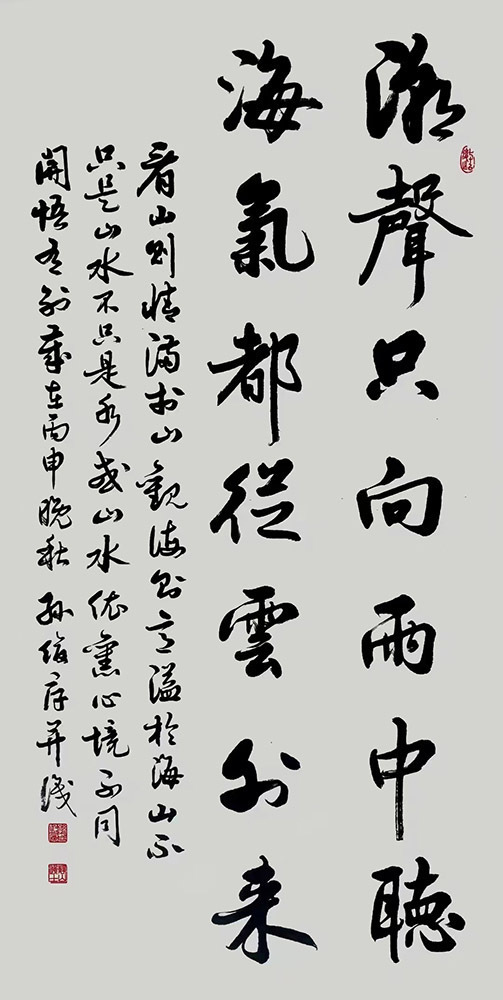 潮聲只向雨中聽
海氣都從雲外來
看山則情滿於山觀海則意溢於海山不
只是山水不只是水或山水依舊心境不同
開悟有別歲在丙申晚秋 孫并識